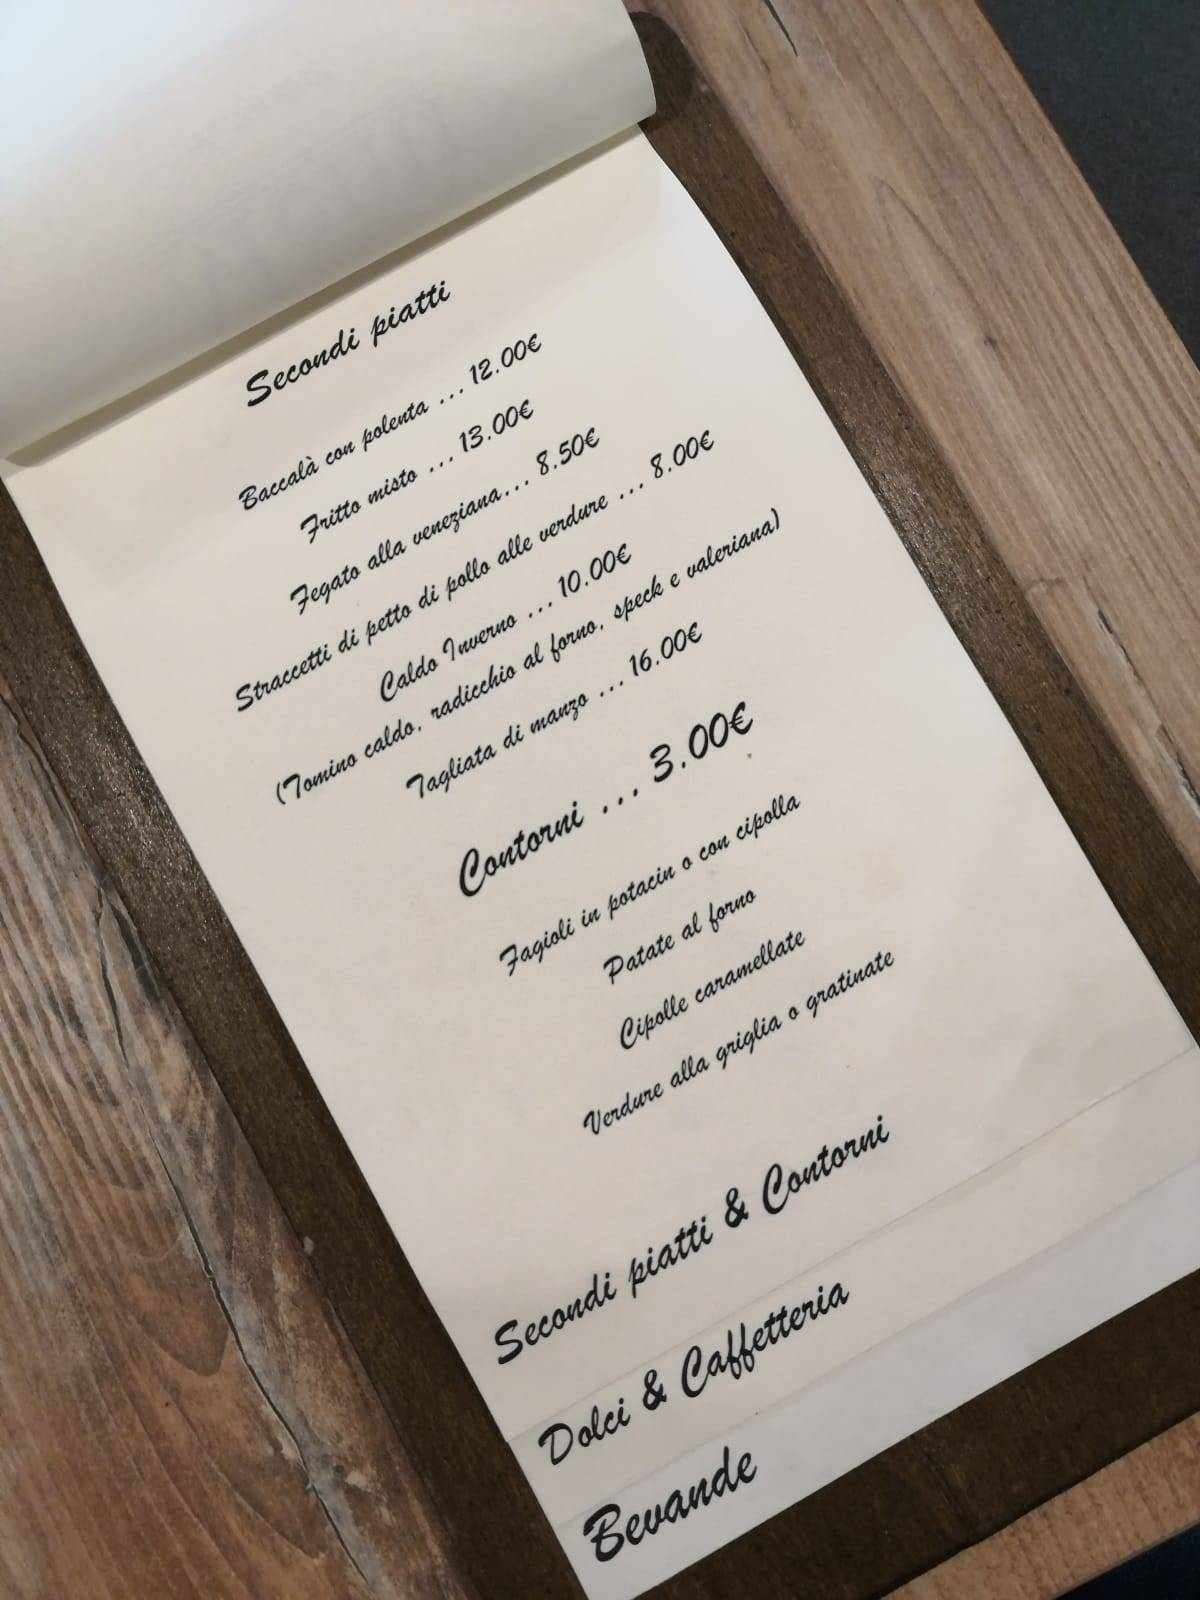 Secondi piatti
Baccalà con polenta ... 12.00€
Fritto misto ... 13.00€
Fegato alla veneziana... 8.50€
Straccetti di petto di pollo alle verdure ... 8.00€
Caldo Inverno ... 10.00€
(Tomino caldo, radicchio al forno, speck e valeriana)
Tagliata di manzo ... 16.00€
Contorni ... 3.00€
Fagioli in potacin o con cipolla
Patate al forno
Cipolle caramellate
Verdure alla griglia o gratinate
Secondi piatti & Contorni
Dolci & Caffetteria
Bevande